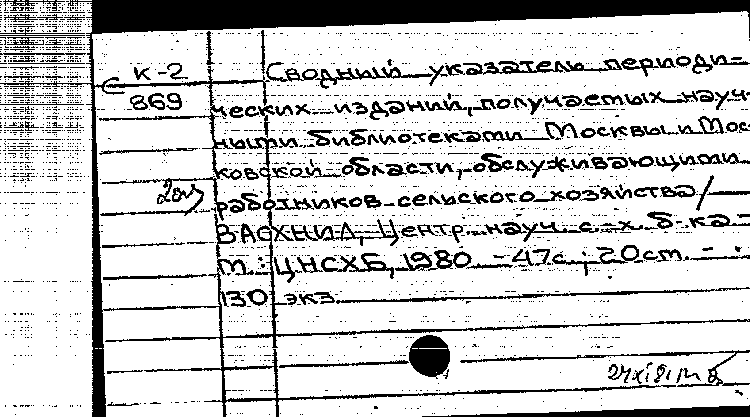 К-2
869
Сводный указатель периоди-
ческих изданий, получаемых науч-
ными библиотеками Москвы и Мос-
ковской области, обслуживающими
работников сельского хозяйства /
ВАСХНИЛ, Центр. науч. с.-х. б-ка -
М.: ЦНСХБ, 1980. - 47с.; 20см. - .
130 экз.